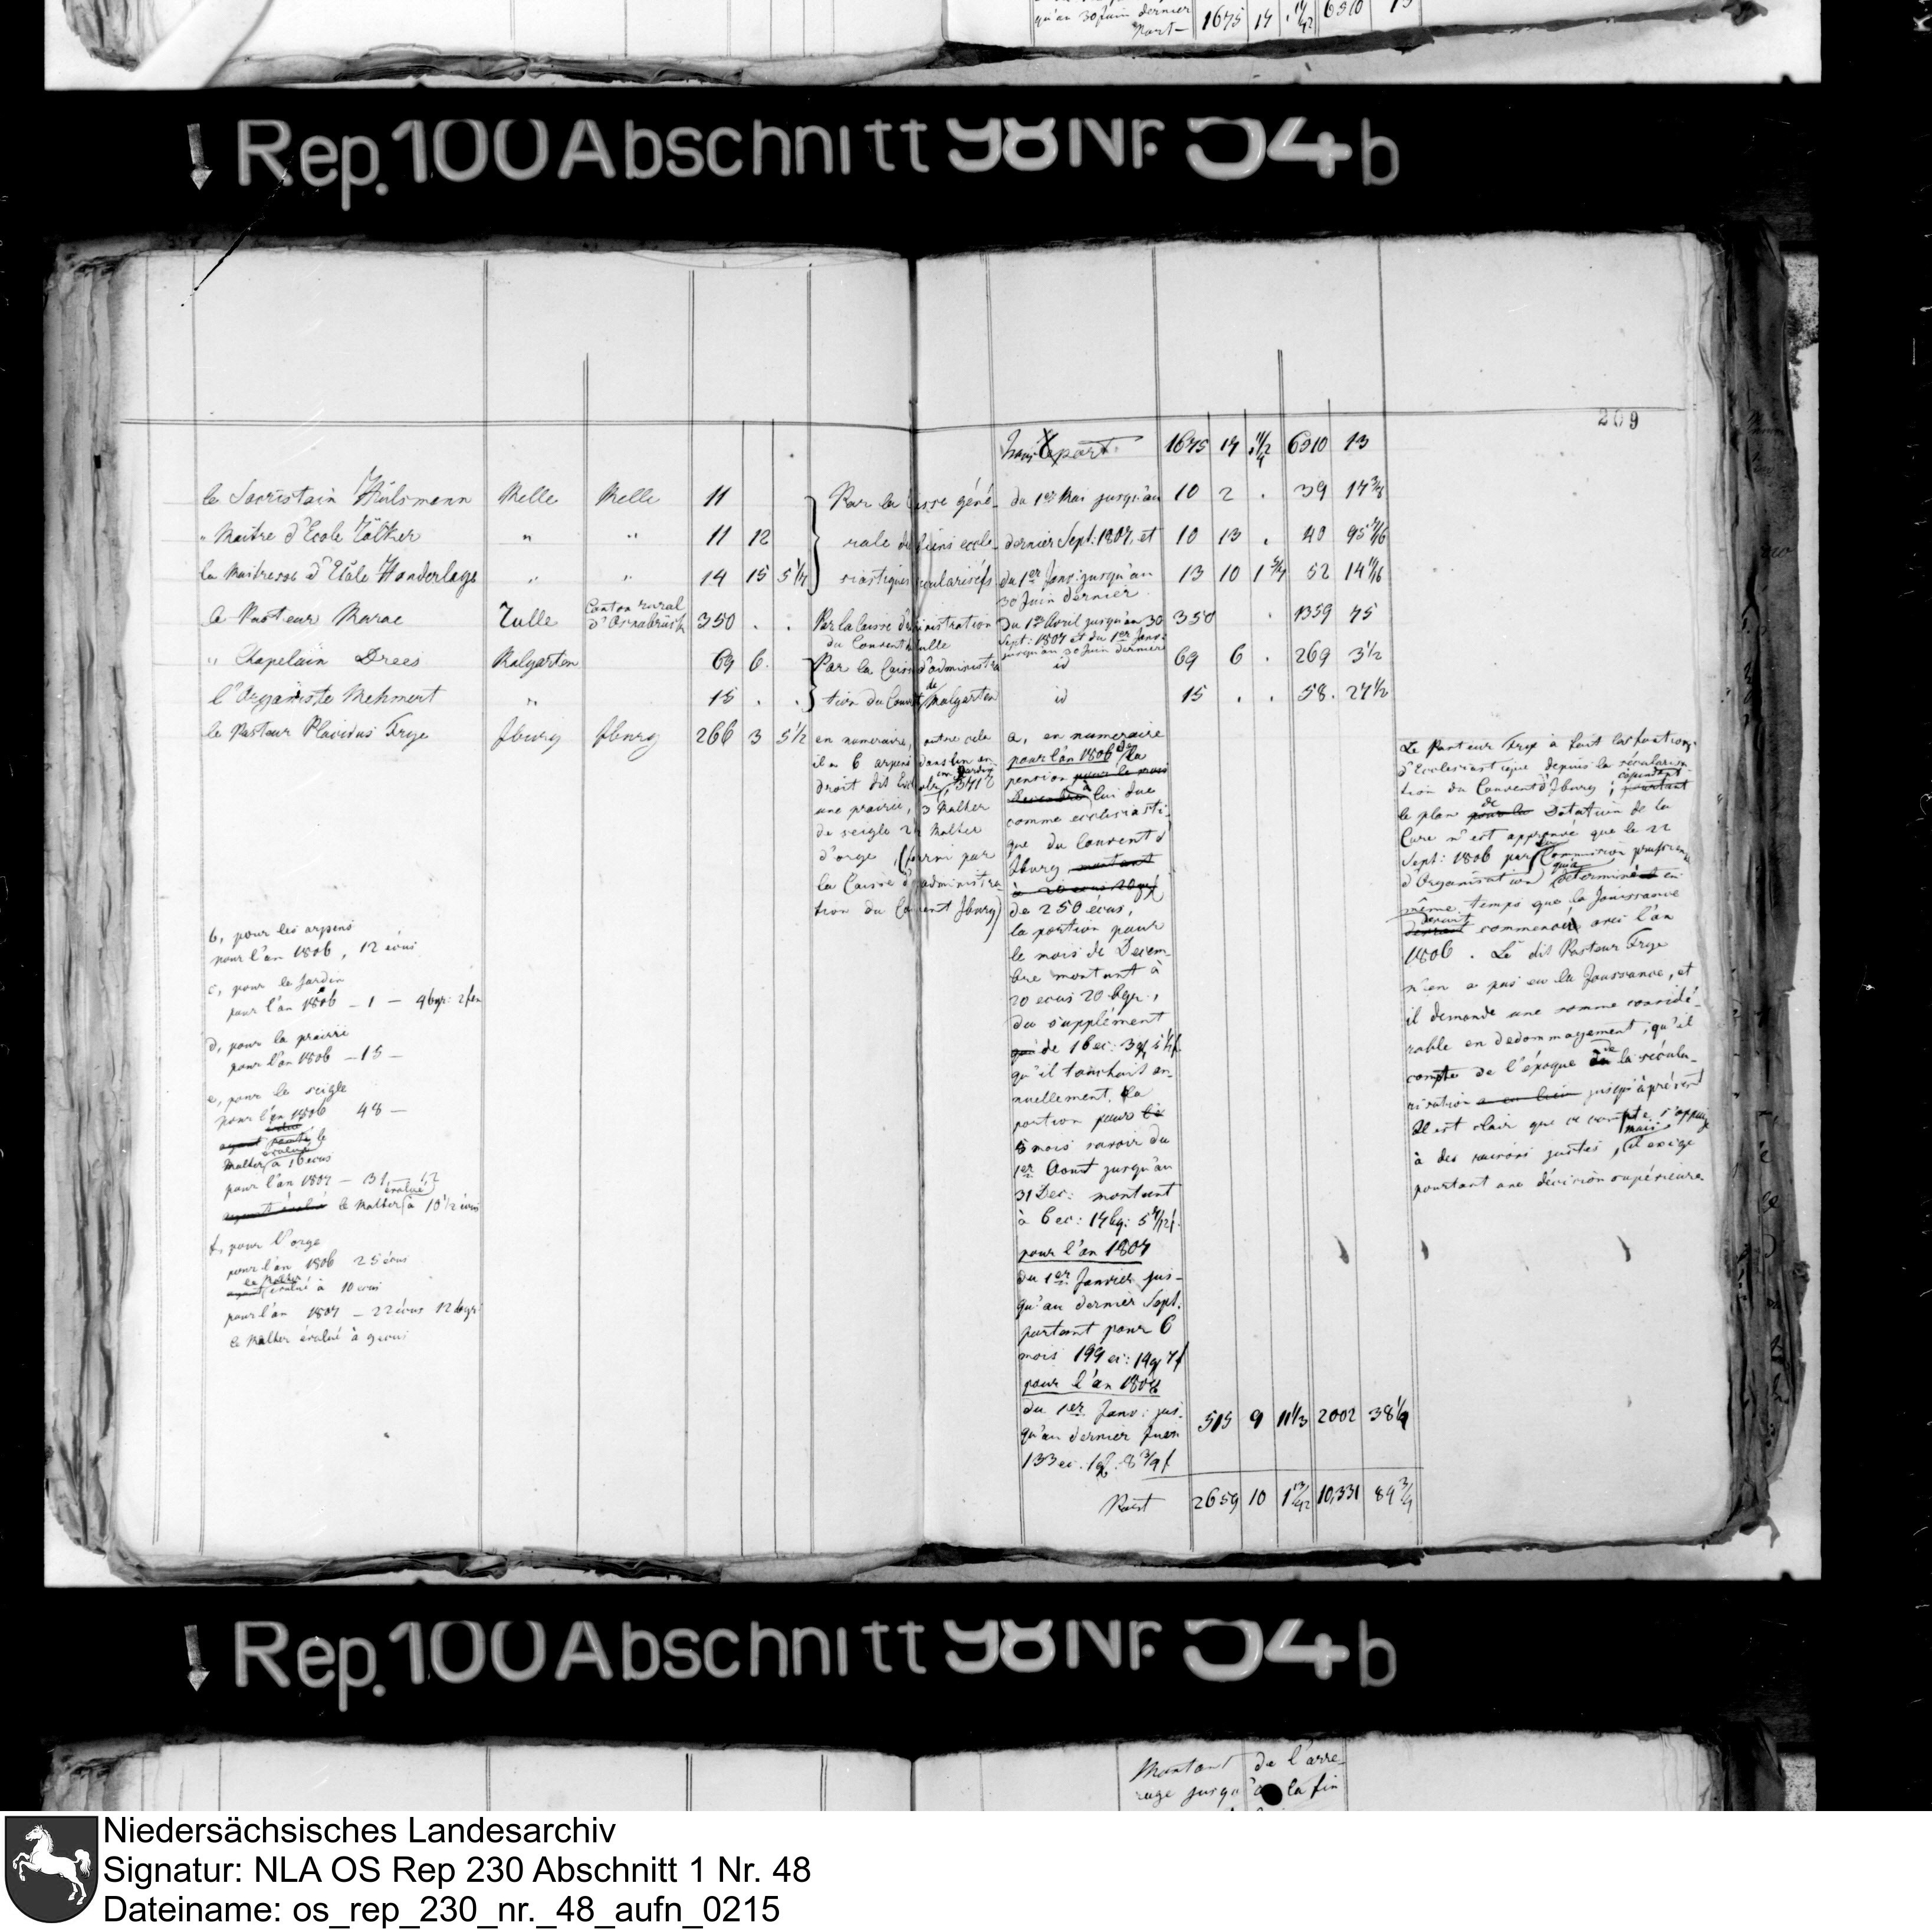 qu'au 30 Juin dernier 1675 17 6310 13
Port
Rep. 100 Abschnitt 98 Nr. 54 b
209
Transport 1675 17 6310 13
le Sacristain Hülsmann Melle Melle 11 Par la Caisse géné- du 1er Mai jusqu'au 10 2 . 39 17 3/8
" Maitre d'Ecole Tölker " " 11 12 rale des biens eccle- dernier Sept: 1807, et 10 13 . 40 95
la Maitresse d'Ecole Honderlage " " 14 15 5 1/4 siastiques secularisés du 1er Janv: jusqu'au 13 10 1 52 14
30 Juin dernier
le Pasteur Marac Rulle Canton rural d'Osnabrück 350 . . Par la Caisse d'administration du 1er Avril jusqu'au 30 350 . 1359 75
du Couvent Rulle Sept: 1807 et du 1er Janv:
jusqu'au 30 Juin dernier
" Chapelain Drees Malgarten 69 6 . Par la Caisse d'administra- id 69 6 . 269 3 1/2
l'Organiste Mehmert " 15 . . tion du Couvent de Malgarten id 15 . . 58 . 27 1/2
le Pasteur Placidus Frye Iburg Iburg 266 3 5 1/2
en numeraire, outre cela
il a 6 arpens dans un en-
droit dit
une prairie, 3 Malter
de seigle 2 1/2 Malter
d'orge, (fourni par
la Caisse d'administra-
tion du Couvent Iburg)
a, en numeraire
pour l'an 1806 de la
pension pour le mois
Decembre à lui due
comme ecclesiasti-
que du Couvent d'
Iburg montant
à 20 ecus 20 gr
de 250 écus,
la portion pour
le mois de Decem-
bre montant à
20 ecus 20 bgr.,
du supplément
de 16 ec: 3 g
qu'il touchait an-
nuellement, la
portion pour
5 mois savoir du
1er Aout jusqu'au
31 Dec: montant
à 6 ec: 17 bg: 5
pour l'an 1807
du 1er Janvier jus-
qu'au dernier Sept.
partant pour 6
mois 199 ec: 14 g 7 f
pour l'an 1808
du 1er Janv: jus- 515 9 11 1/3 2002 38 1/4
qu'au dernier Juin
133 ec. 1 g. 8 3/4 f
Port 2659 10 1 10,331 89 3/4
Le Pasteur Frye a fait les fonctions
d'Ecclesiastique depuis la séculari-
tion du Couvent d'Iburg ; cependant pourtant
le plan de pour la Dotation de la
Cure n'est approuvé que le 22
Sept: 1806 par la Commission
d'Organisation qui a determiné en
même temps que la Jouissance
devait commencer avec l'an
1806. Le dit Pasteur Frye
n'en a pas eu la Jouissance, et
il demande une somme considé-
rable en dedommagement, qu'il
compte de l'époque de la sécula-
risation a eu lieu jusqu'à présent
Il est clair que ce compte s'appuie
à des raisons justes, mais il exige
pourtant une décision supérieure.
b, pour les arpens
pour l'an 1806, 12 écus
c, pour le Jardin
pour l'an 1806 – 1 – 9 bgr: 2 fen
d, pour la prairie
pour l'an 1806 – 15 –
e, pour le seigle
pour l'an 1806 48 –
le
Malter évalué à 16 ecus
pour l'an 1807 – 31 . 12
le Malter évalué à 10 1/2 écus
f, pour l'orge
pour l'an 1806 25 écus
le Malter évalué à 10 ecus
pour l'an 1807 – 22 écus 12 bgr:
le Malter évalué à 9 ecus
Rep. 100 Abschnitt 98 Nr. 54 b
Montant de l'arre-
rage jusqu'à la fin
Niedersächsisches Landesarchiv
Signatur: NLA OS Rep 230 Abschnitt 1 Nr. 48
Dateiname: os_rep_230_nr._48_aufn_0215